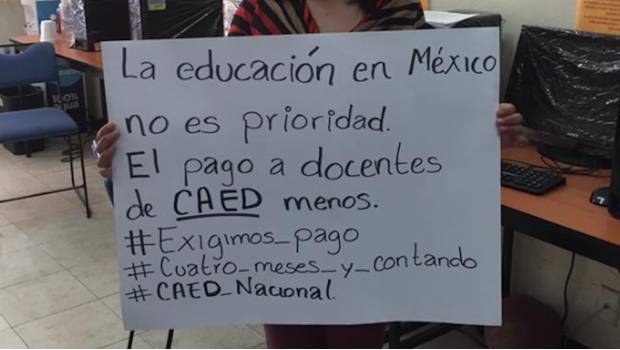 La educación en México
no es prioridad.
El pago a docentes
de CAED menos.
#Exigimos_pago
#Cuatro_meses_y_contando
#CAED_Nacional.
100%